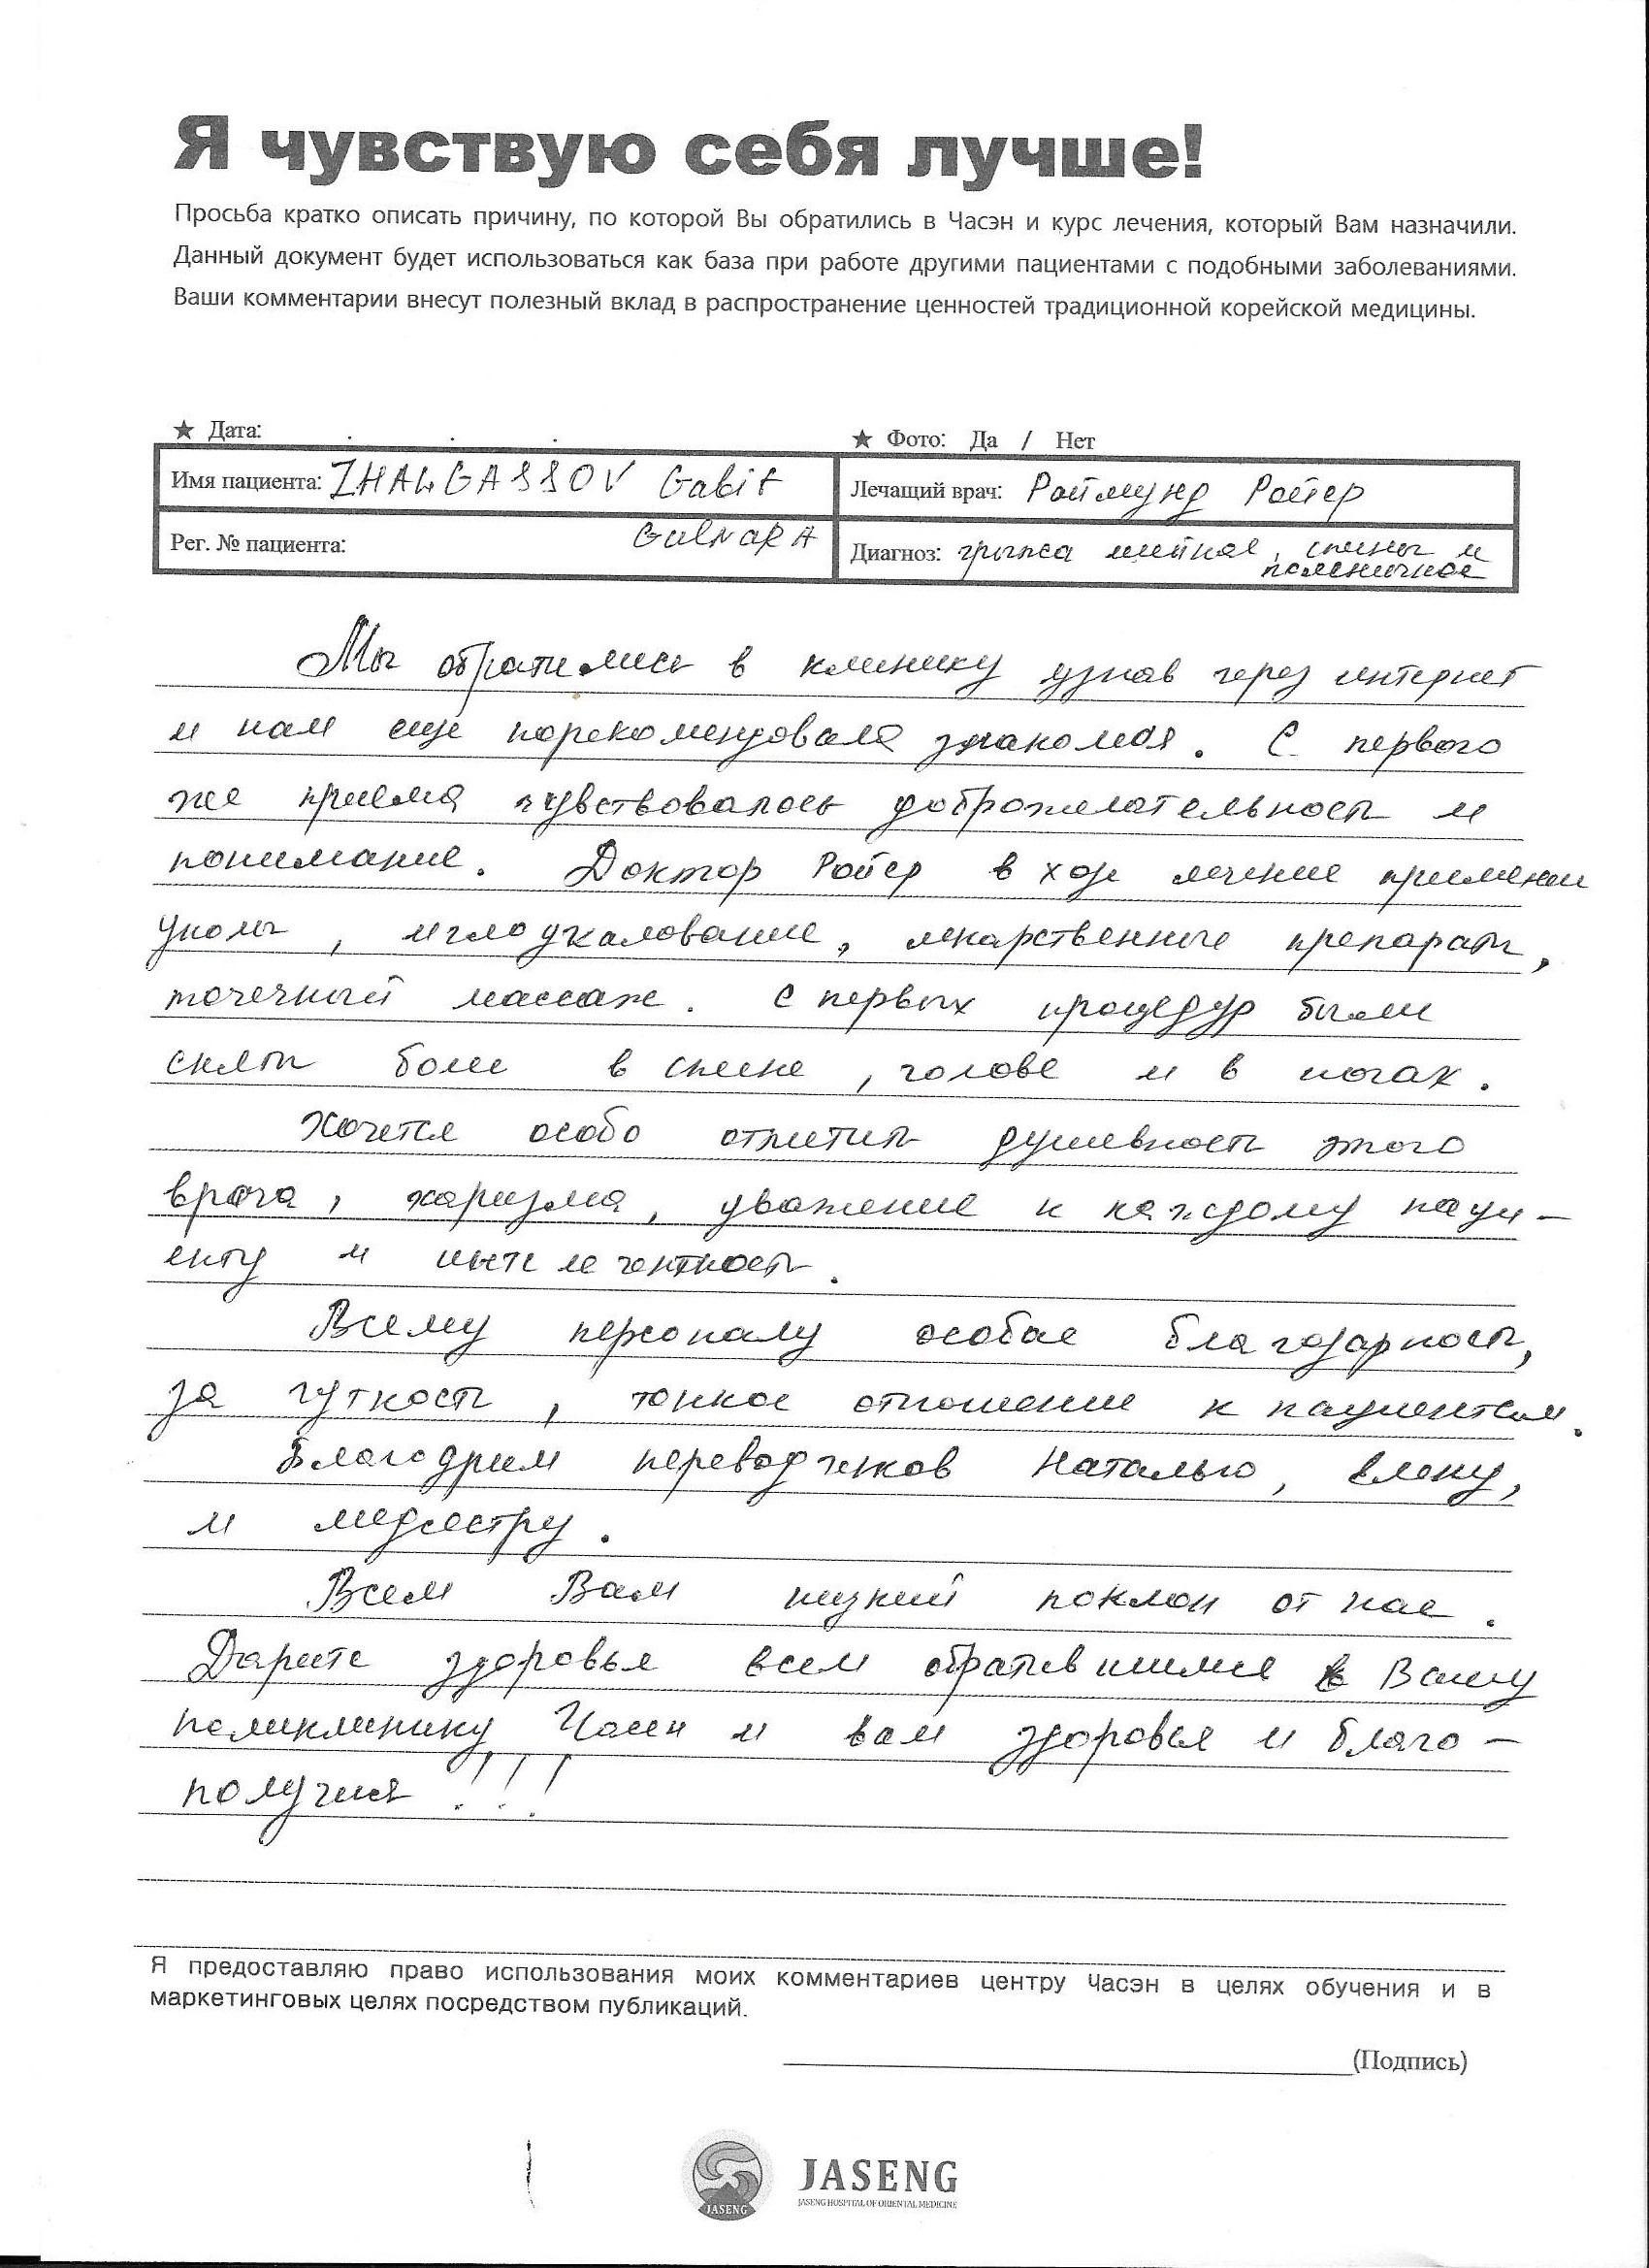 Я чувствую себя лучше!
Просьба кратко описать причину, по которой Вы обратились в Часэн и курс лечения, который Вам назначили.
Данный документ будет использоваться как база при работе другими пациентами с подобными заболеваниями.
Ваши комментарии внесут полезный вклад в распространение ценностей традиционной корейской медицины.
★ Дата: . . .
★ Фото: Да / Нет
Имя пациента: ZHALGASSOV Gabit
Лечащий врач: Раймунд Ройер
Рег. № пациента: GulNaRA
Диагноз: грыжа шейная, спины и
поясничное
Мы обратились в клинику узнав через интернет
и нам ещё порекомендовала знакомая. С первого
же приема чувствовалось доброжелательность и
понимание. Доктор Ройер в ходе лечение применен
уколы, иглоукалование, лекарственные препараты,
точечный массаж. С первых процедур были
сняты боли в спине, голове и в ногах.
Хочется особо отметить душевность этого
врача, харизма, уважение к каждому паци-
енту и интелегентность.
Всему персоналу особое благодарность,
за чуткость, тонкое отношение к пациентам.
Благодрим переводчиков Наталью, Елену,
и медсестру.
Всем Вам низкий поклон от нас.
Дарите здоровье всем обратившимся в Вашу
поликлинику Часен и вам здоровья и благо-
получия!!!
Я предоставляю право использования моих комментариев центру Часэн в целях обучения и в
маркетинговых целях посредством публикаций.
(Подпись)
JASENG
JASENG
JASENG HOSPITAL OF ORIENTAL MEDICINE